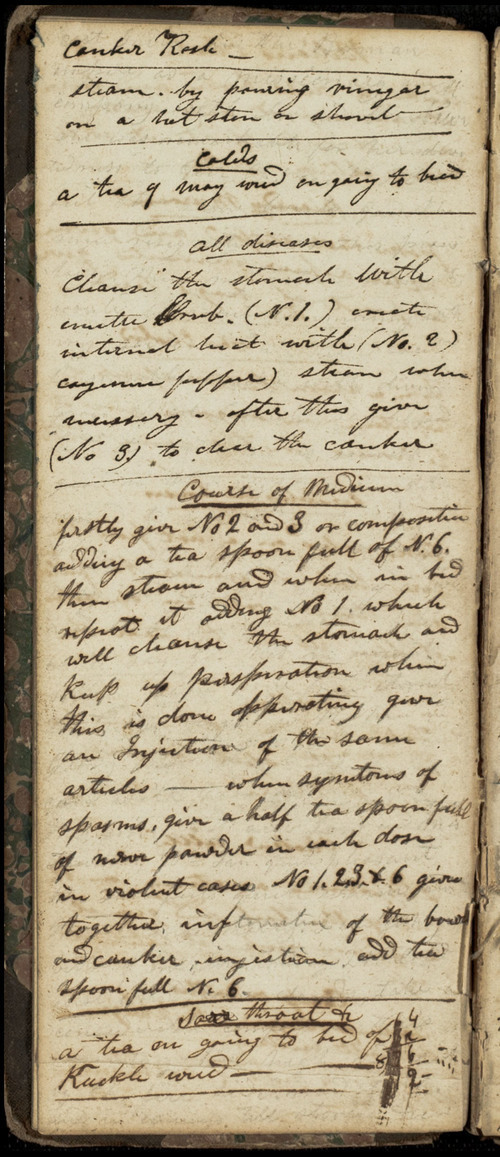 Canker Rash
steam. by pouring vinegar
on a hot ston or shovel
Colds
a tea of may weed on going to bed
All diseases
Cleanse the stomach With
emetic Herub. (N. 1.) create
internal heat with (No. 2)
cayenne pepper) steam when
necessery - after this give
(No 3) to clear the canker
Course of Medicien
firstly give No 2 and 3 or composition
adding a tea spoon full of N. 6.
then steam and when in bed
repeat it adding No 1. which
will cleanse the stomach and
keep up perspiration when
this is done opperating give
an Injection of the same
articles — when symtoms of
spasms, give a half tea spoon full
of nerve powder in each dose
in violent cases No 1. 2. 3. & 6 given
together, of the bowels
and canker injection add tea
spoon full N. 6.
Sore throat &
a tea on going to bed of
Kuckle weed —